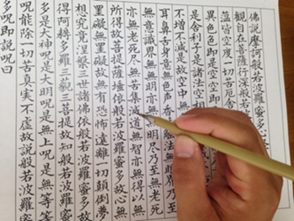 佛說摩訶般若波羅蜜多
觀自在菩薩行深般若波
蘊皆空度一切苦厄舍
異色色即是空空即是
是舍利子是諸法空相
不增不減是故空中無
耳鼻舌身意無色聲香味觸
無意識界無無明亦無無明盡乃至無老死
亦無老死盡無苦集滅道無智亦無得以無
所得故菩提薩埵依般若波羅蜜多故心無
罣礙無罣礙故無有恐怖遠離一切顛倒夢
想究竟涅槃三世諸佛依般若波羅蜜多故
得阿耨多羅三藐三菩提故知般若波羅蜜
多是大神呪是大明呪是無上呪是無等等
呪能除一切苦真實不虛故說般若波羅蜜
多呪即說呪曰